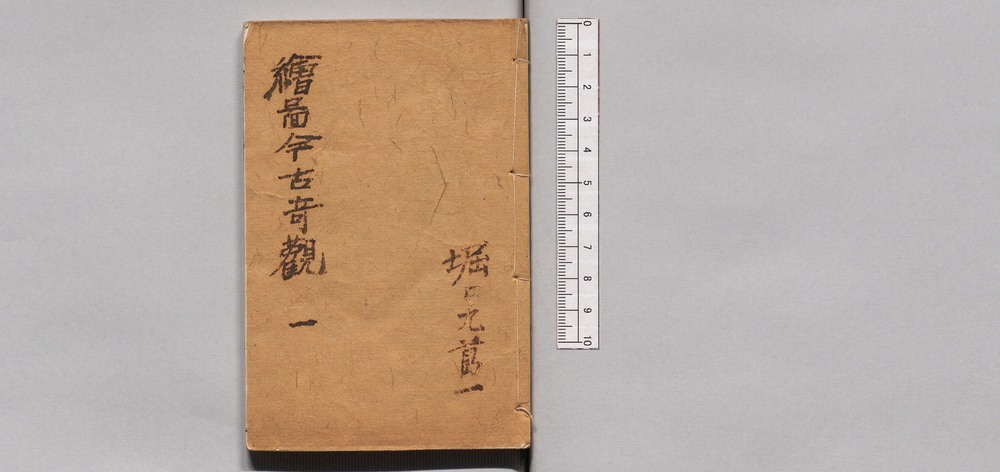 繪圖今古奇觀 一
堀口九萬一
0 1 2 3 4 5 6 7 8 9 10